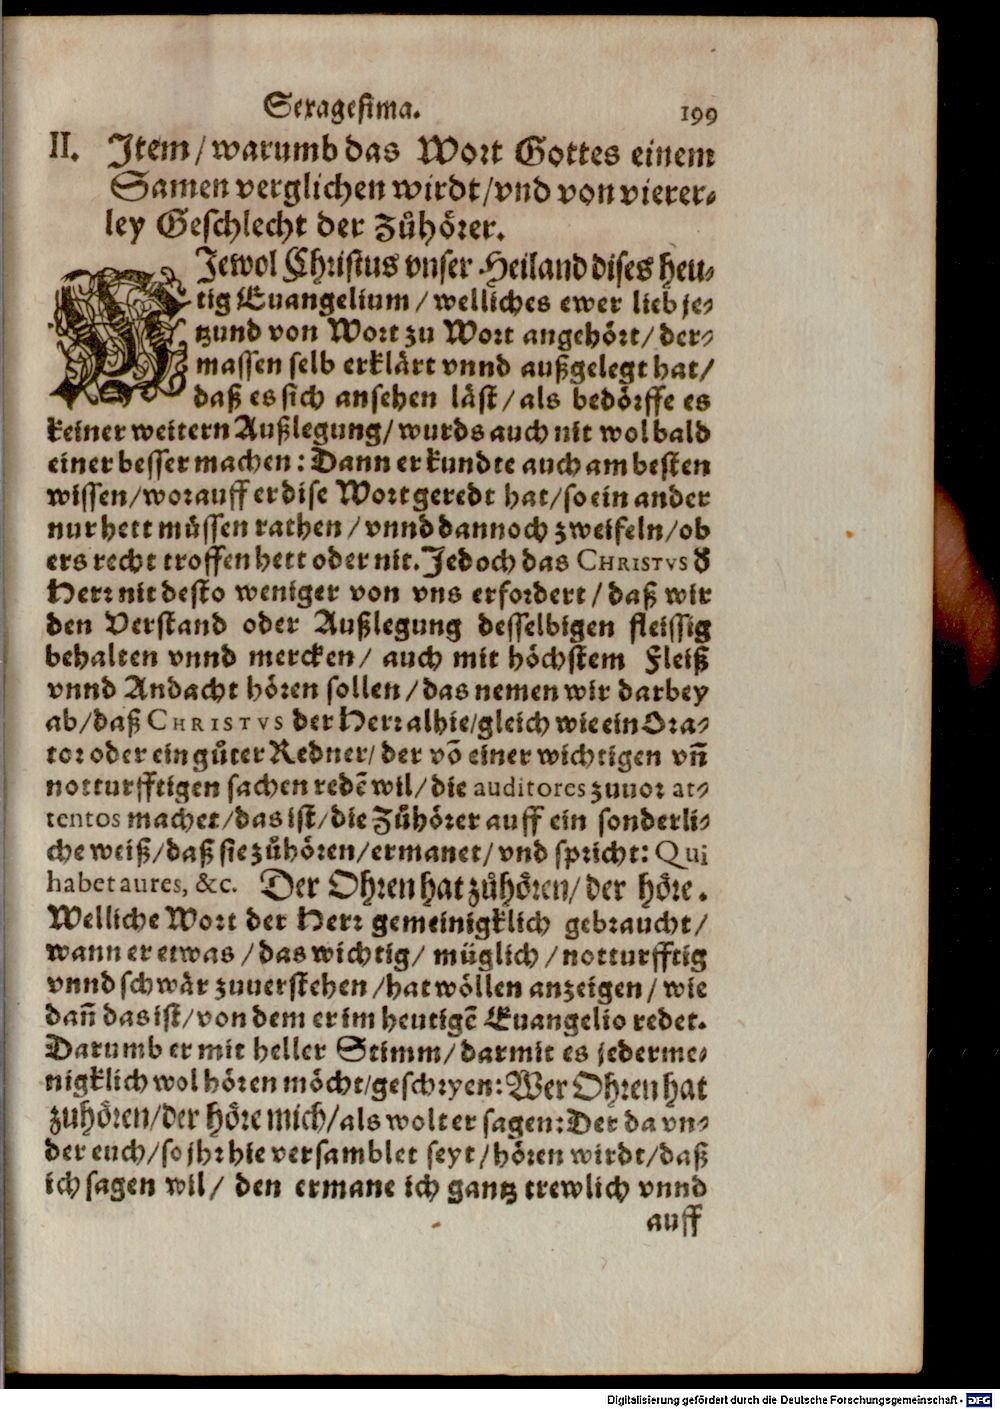 Sexagesima. 199
II. Item/warumb das Wort Gottes einem
Samen verglichen wirdt/vnd von vierer⸗
ley Geschlecht der Zůhörer.
WIewol Christus vnser Heiland dises heu⸗
tig Euangelium/welliches ewer lieb je⸗
tzund von Wort zu Wort angehört/der⸗
massen selb erklärt vnnd außgelegt hat/
daß es sich ansehen läst/als bedörffe es
keiner weitern Außlegung/wurds auch nit wol bald
einer besser machen: Dann er kundte auch am besten
wissen/worauff er dise Wort geredt hat/so ein ander
nur hett müssen rathen/vnnd dannoch zweifeln/ob
ers recht troffen hett oder nit. Jedoch das CHRISTVS ď
Herr nit desto weniger von vns erfordert/daß wir
den Verstand oder Außlegung desselbigen fleissig
behalten vnnd mercken/ auch mit höchstem Fleiß
vnnd Andacht hören sollen/das nemen wir darbey
ab/daß CHRISTVS der Herr alhie/gleich wie ein Ora⸗
tor oder ein gůter Redner/der võ einer wichtigen vñ
notturfftigen sachen redẽ wil/die auditores zuuor at⸗
tentos machet/das ist/die Zůhörer auff ein sonderli⸗
che weiß/daß sie zůhören/ermanet/vnd spricht: Qui
habet aures, &c. Der Ohren hat zůhören/der höre.
Welliche Wort der Herr gemeinigklich gebraucht/
wann er etwas/das wichtig/müglich/notturfftig
vnnd schwär zuuerstehen/hat wöllen anzeigen/wie
dañ das ist/von dem er im heutigẽ Euangelio redet.
Darumb er mit heller Stimm/darmit es jederme⸗
nigklich wol hören möcht/geschryen: Wer Ohren hat
zuhören/der höre mich/als wolt er sagen: Der da vn⸗
der euch/so jhr hie versamblet seyt/hören wirdt/daß
ich sagen wil/den ermane ich gantz trewlich vnnd
auff
Digitalisierung gefördert durch die Deutsche Forschungsgemeinschaft - DFG